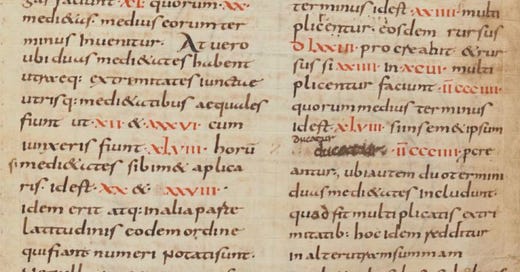 faciunt · XL · quorum · XX ·
medius medius eorum ter
minus invenitur. At vero
ubi duas medi&ctes habent
utræq: extrimitates iunctae
utrisq: medi&ctibus aequales
fiunt ut · XII · & XXXVI · cum
iunxeris fiunt · XLVIII · horū
si medi&ctes sibim& aplica
ris idest · XX & · XXVIII ·
idem erit atq: in alia parte
latitudinis eodem ordine
qui fiant numeri potatis sunt ·
terminus idest · XXIIII · multi
plicentur · eosdem rursus
DLXXVI · pro exeabit & rur
sus si XXIIII · in XCVI · multi
plicentur faciunt · IICCCIIII ·
quorum medius terminus
idest · XLVIII · si in sem&ipsum
ducatur
IICCCIIII · pcre
antur, ubi autem duo termini
duas medi&ctes includunt ·
quod fit multiplicatis extri
mitatib: hoc idem redditur
in alterutram summam